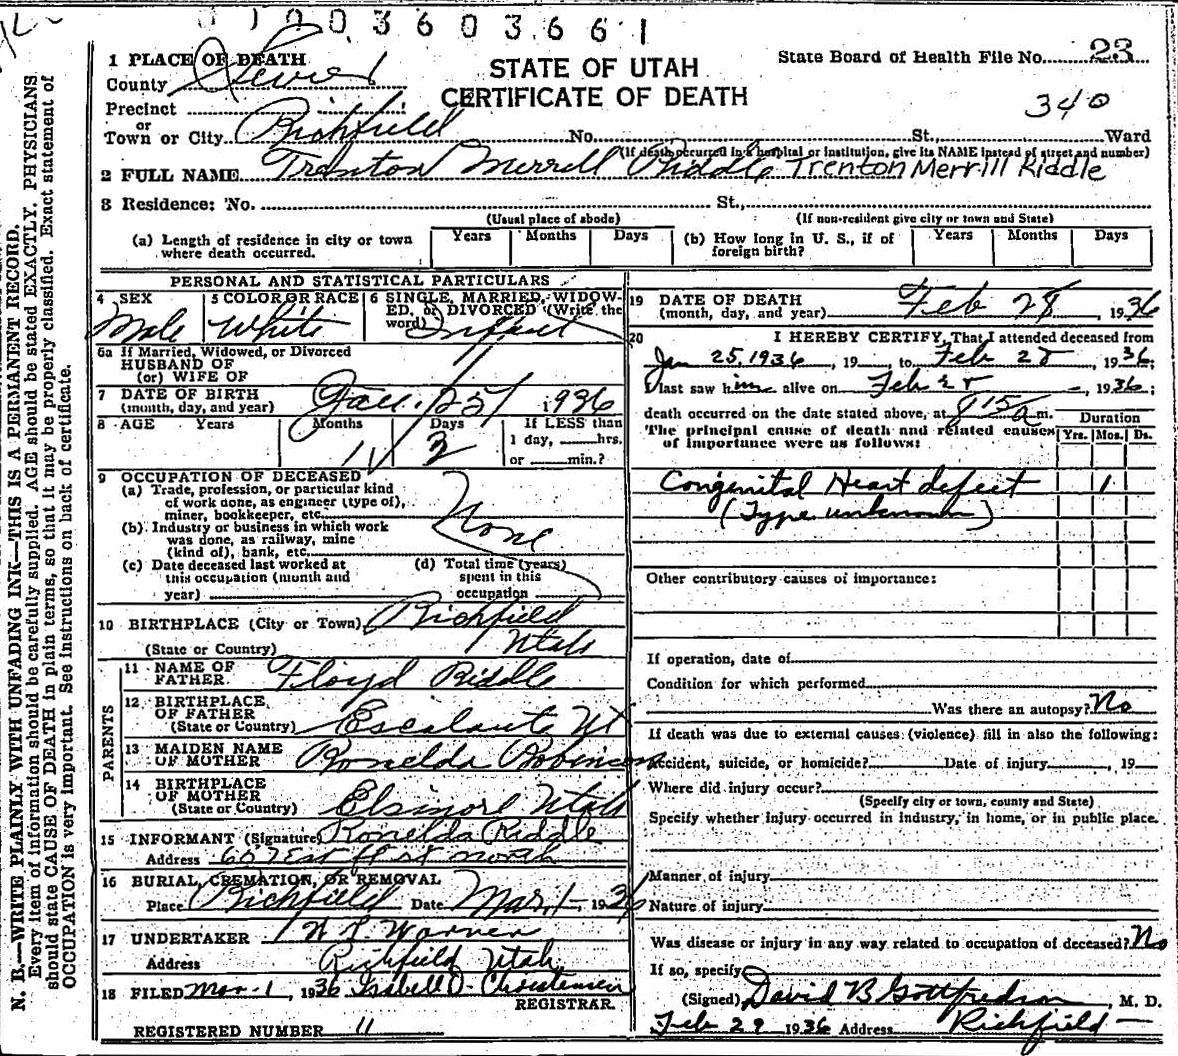 01003603661
1 PLACE OF DEATH
County Sevier
Precinct
or
Town or City Richfield No. St. Ward
STATE OF UTAH
CERTIFICATE OF DEATH
State Board of Health File No. 23
340
(If death occurred in a hospital or institution, give its NAME instead of street and number)
2 FULL NAME Trenton Merrill Riddle Trenton Merrill Riddle
3 Residence: No. St.,
(Usual place of abode) (If non-resident give city or town and State)
(a) Length of residence in city or town where death occurred. Years Months Days (b) How long in U. S., if of foreign birth? Years Months Days
PERSONAL AND STATISTICAL PARTICULARS
4 SEX 5 COLOR OR RACE 6 SINGLE, MARRIED, WIDOW-
ED, or DIVORCED (Write the
word)
Male White Infant
6a If Married, Widowed, or Divorced
HUSBAND OF
(or) WIFE OF
7 DATE OF BIRTH
(month, day, and year) Jan. 25, 1936
8 AGE Years Months Days If LESS than
1 day, hrs.
or min.?
1 3
9 OCCUPATION OF DECEASED
(a) Trade, profession, or particular kind
of work done, as engineer (type of),
miner, bookkeeper, etc.
None
(b) Industry or business in which work
was done, as railway, mine
(kind of), bank, etc.
(c) Date deceased last worked at
this occupation (month and
year)
(d) Total time (years)
spent in this
occupation
10 BIRTHPLACE (City or Town) Richfield
(State or Country) Utah
PARENTS
11 NAME OF
FATHER Floyd Riddle
12 BIRTHPLACE
OF FATHER
(State or Country) Escalante Ut
13 MAIDEN NAME
OF MOTHER Ronelda Robinson
14 BIRTHPLACE
OF MOTHER
(State or Country) Elsinore Utah
15 INFORMANT (Signature) Ronelda Riddle
Address East north
16 BURIAL, CREMATION, OR REMOVAL
Place Richfield Date Mar, 1 - 1936
17 UNDERTAKER Warner
Address Richfield Utah
18 FILED Mar - 1, 1936 Isabell D. Christensen
REGISTRAR.
REGISTERED NUMBER 11
19 DATE OF DEATH
(month, day, and year) Feb 28, 1936
20 I HEREBY CERTIFY, That I attended deceased from
Jan 25, 1936, 19 to Feb 28, 1936;
I last saw him alive on Feb 28 - , 1936;
death occurred on the date stated above, at 8 15 a m.
The principal cause of death and related causes
of importance were as follows:
Duration
Yrs. Mos. Ds.
Congenital Heart defect 1
(Type unknown)
Other contributory causes of importance:
If operation, date of
Condition for which performed
Was there an autopsy? No
If death was due to external causes (violence) fill in also the following:
Accident, suicide, or homicide? Date of injury , 19
Where did injury occur?
(Specify city or town, county and State)
Specify whether injury occurred in industry, in home, or in public place.
Manner of injury
Nature of injury
Was disease or injury in any way related to occupation of deceased? No
If so, specify
(Signed) David B Gottfredson, M. D.
Feb 29 1936 Address Richfield -
N. B.—WRITE PLAINLY WITH UNFADING INK—THIS IS A PERMANENT RECORD.
Every item of information should be carefully supplied. AGE should be stated EXACTLY. PHYSICIANS
should state CAUSE OF DEATH in plain terms, so that it may be properly classified. Exact statement of
OCCUPATION is very important. See instructions on back of certificate.